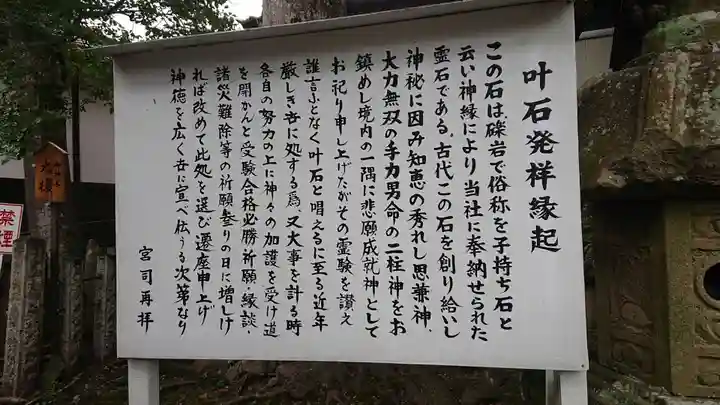 叶石発祥縁起
この石は、礫岩で俗称を子持ち石と
云い神縁により当社に奉納せられた
霊石である。古代この石を創り給いし
神秘に因み知恵の秀れし思兼神、
大力無双の手力男命の二柱神をお
鎮めし境内の一隅に悲願成就神として
お祀り申し上げたがその霊験を讃え
誰言ふとなく叶石と唱えるに至る近年
厳しき世に処する為、又大事を計る時
各自の努力の上に神々の加護を受け道
を開かんと受験合格必勝祈願・縁談・
諸災難除等の祈願参りの日に増しけ
れば改めて此処を選び遷座申上げ
神徳を広く世に宣べ伝うる次第なり
宮司再拝
禁煙